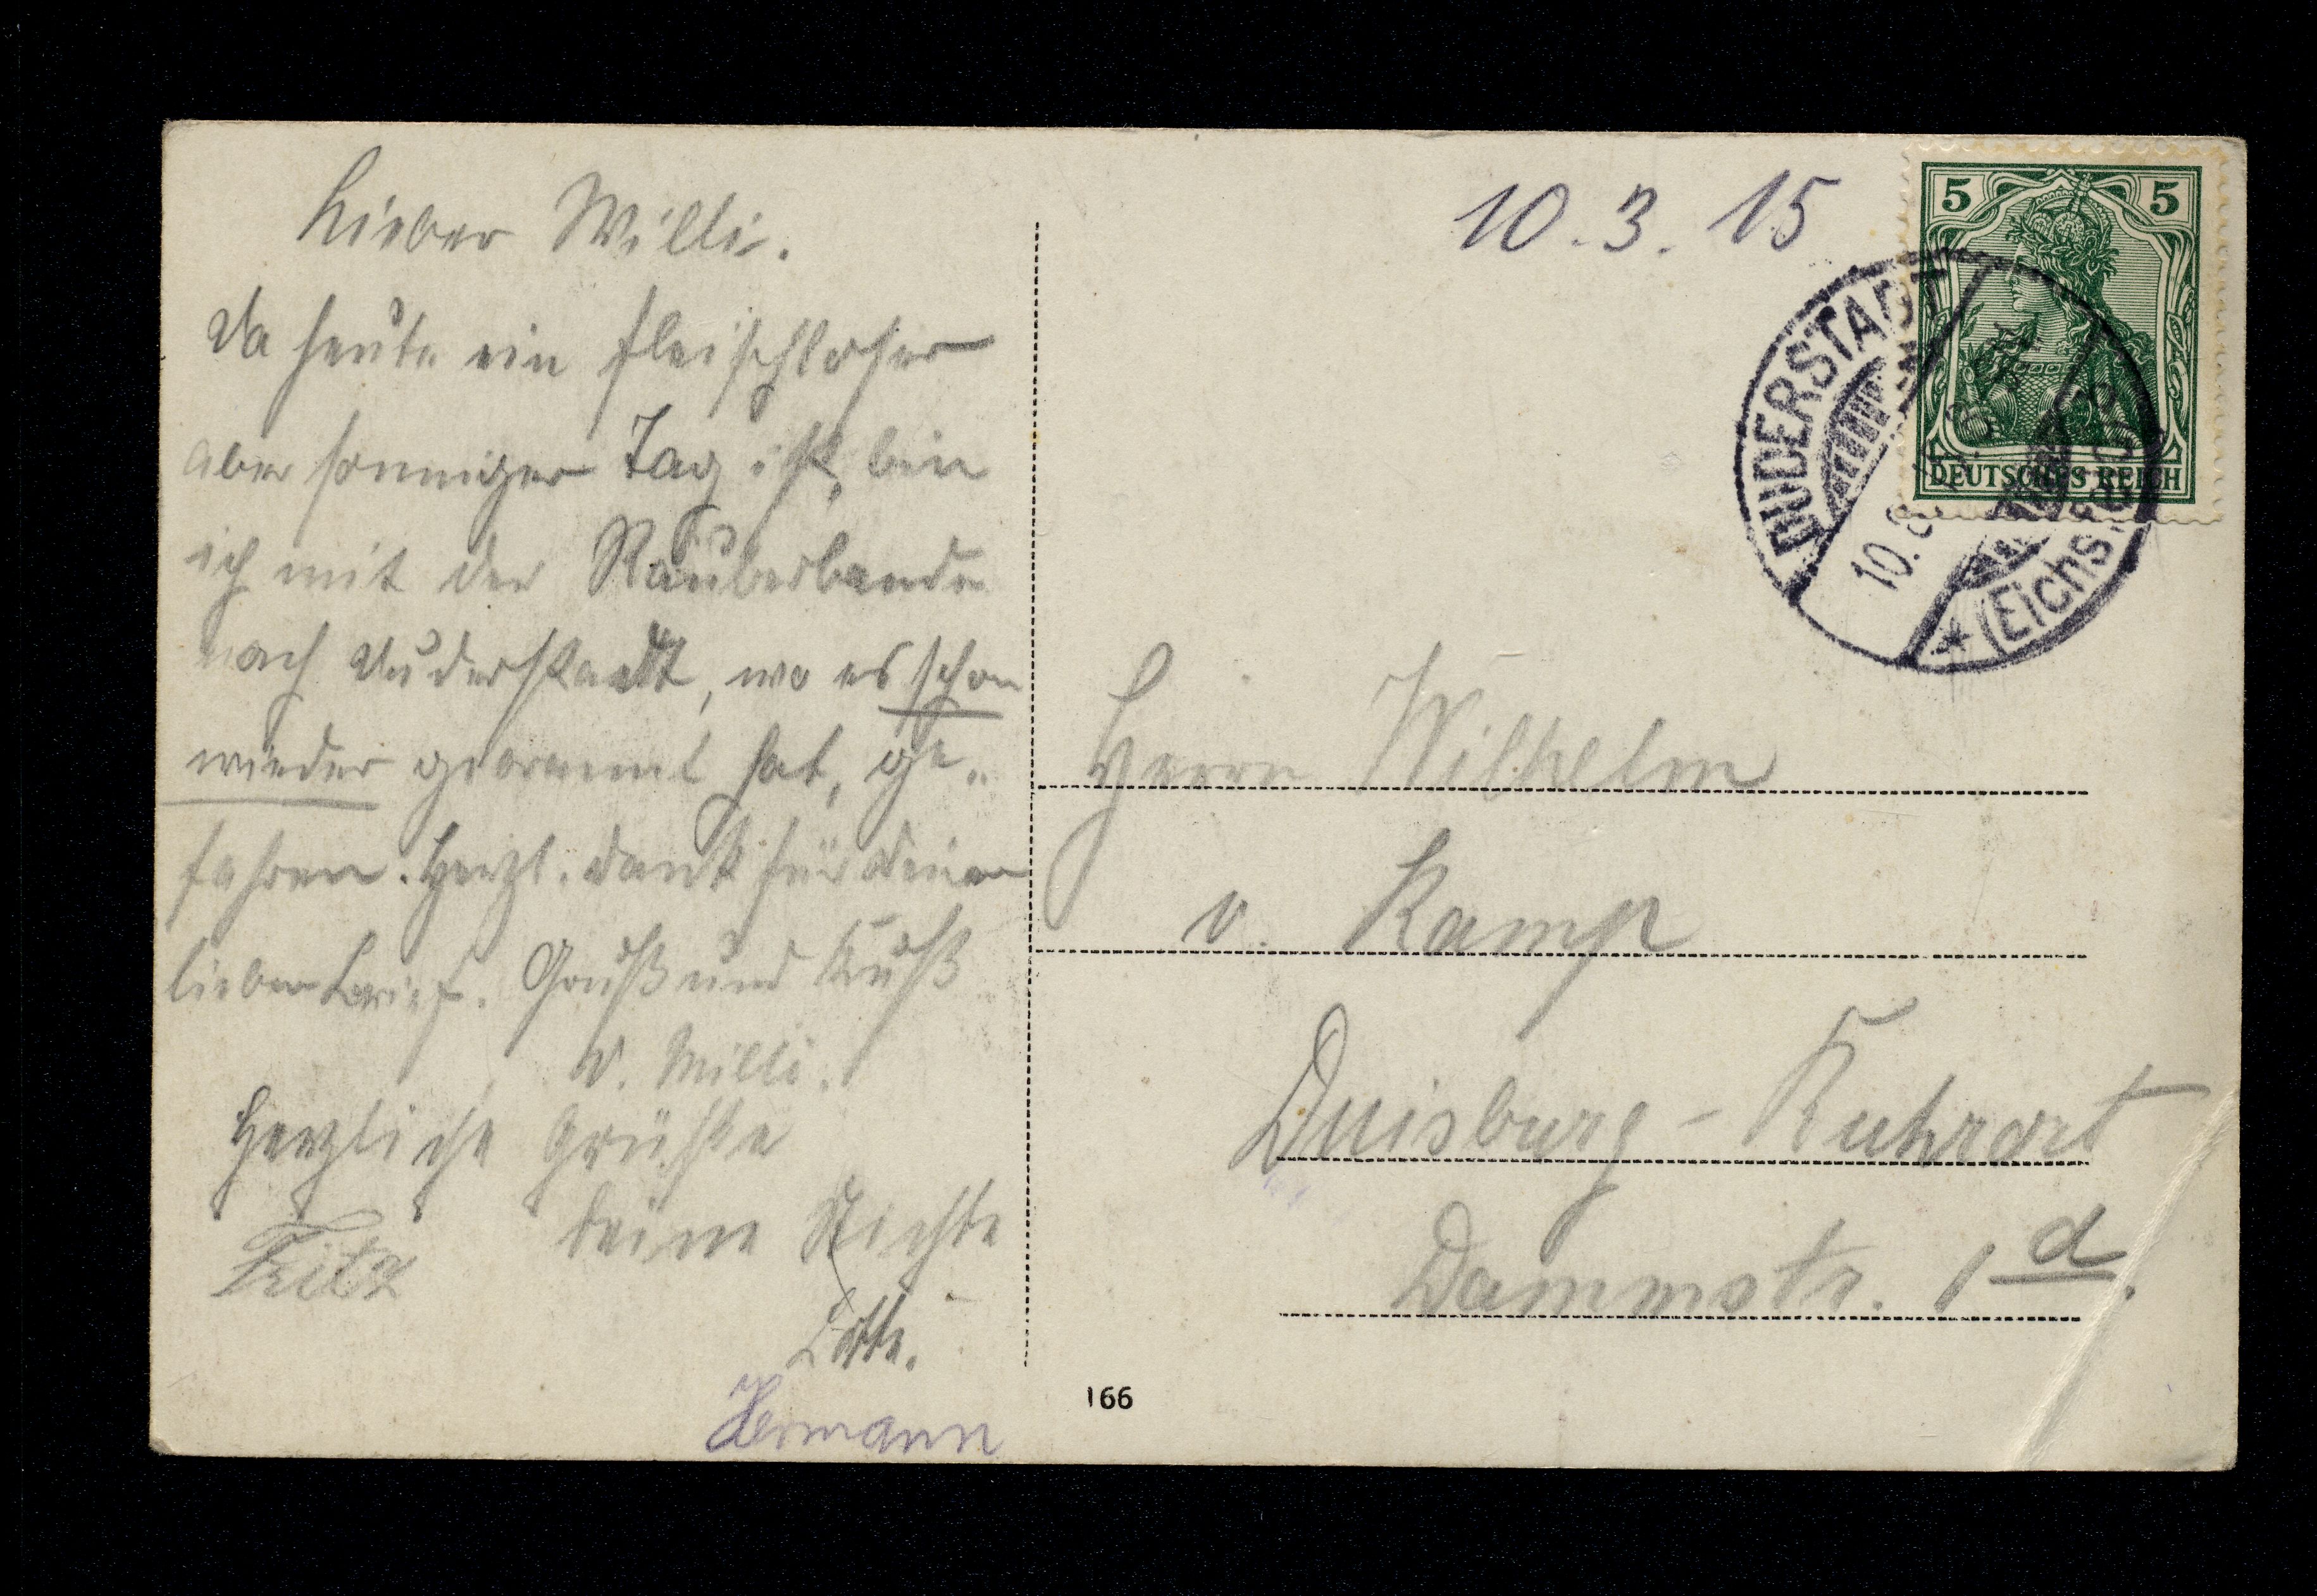 Lieber Willi.
Da heute ein fleischloser
aber sonniger Tag ist, bin
ich mit der Räuberbande
nach Duderstadt, wo es schon
wieder gebrannt hat, ge-
fahren. Herzl. Dank für deinen
lieben Brief. Gruß und Kuß
D. Milli.
Herzliche Grüße
deine Nichte
Fritz
Lotte.
Hermann
10.3.15
5 5
DEUTSCHES REICH
DUDERSTADT
10.
* (Eichsfeld)
Herrn Wilhelm
v. Kamp
Duisburg-Ruhrort
Dammstr. 1 d.
166